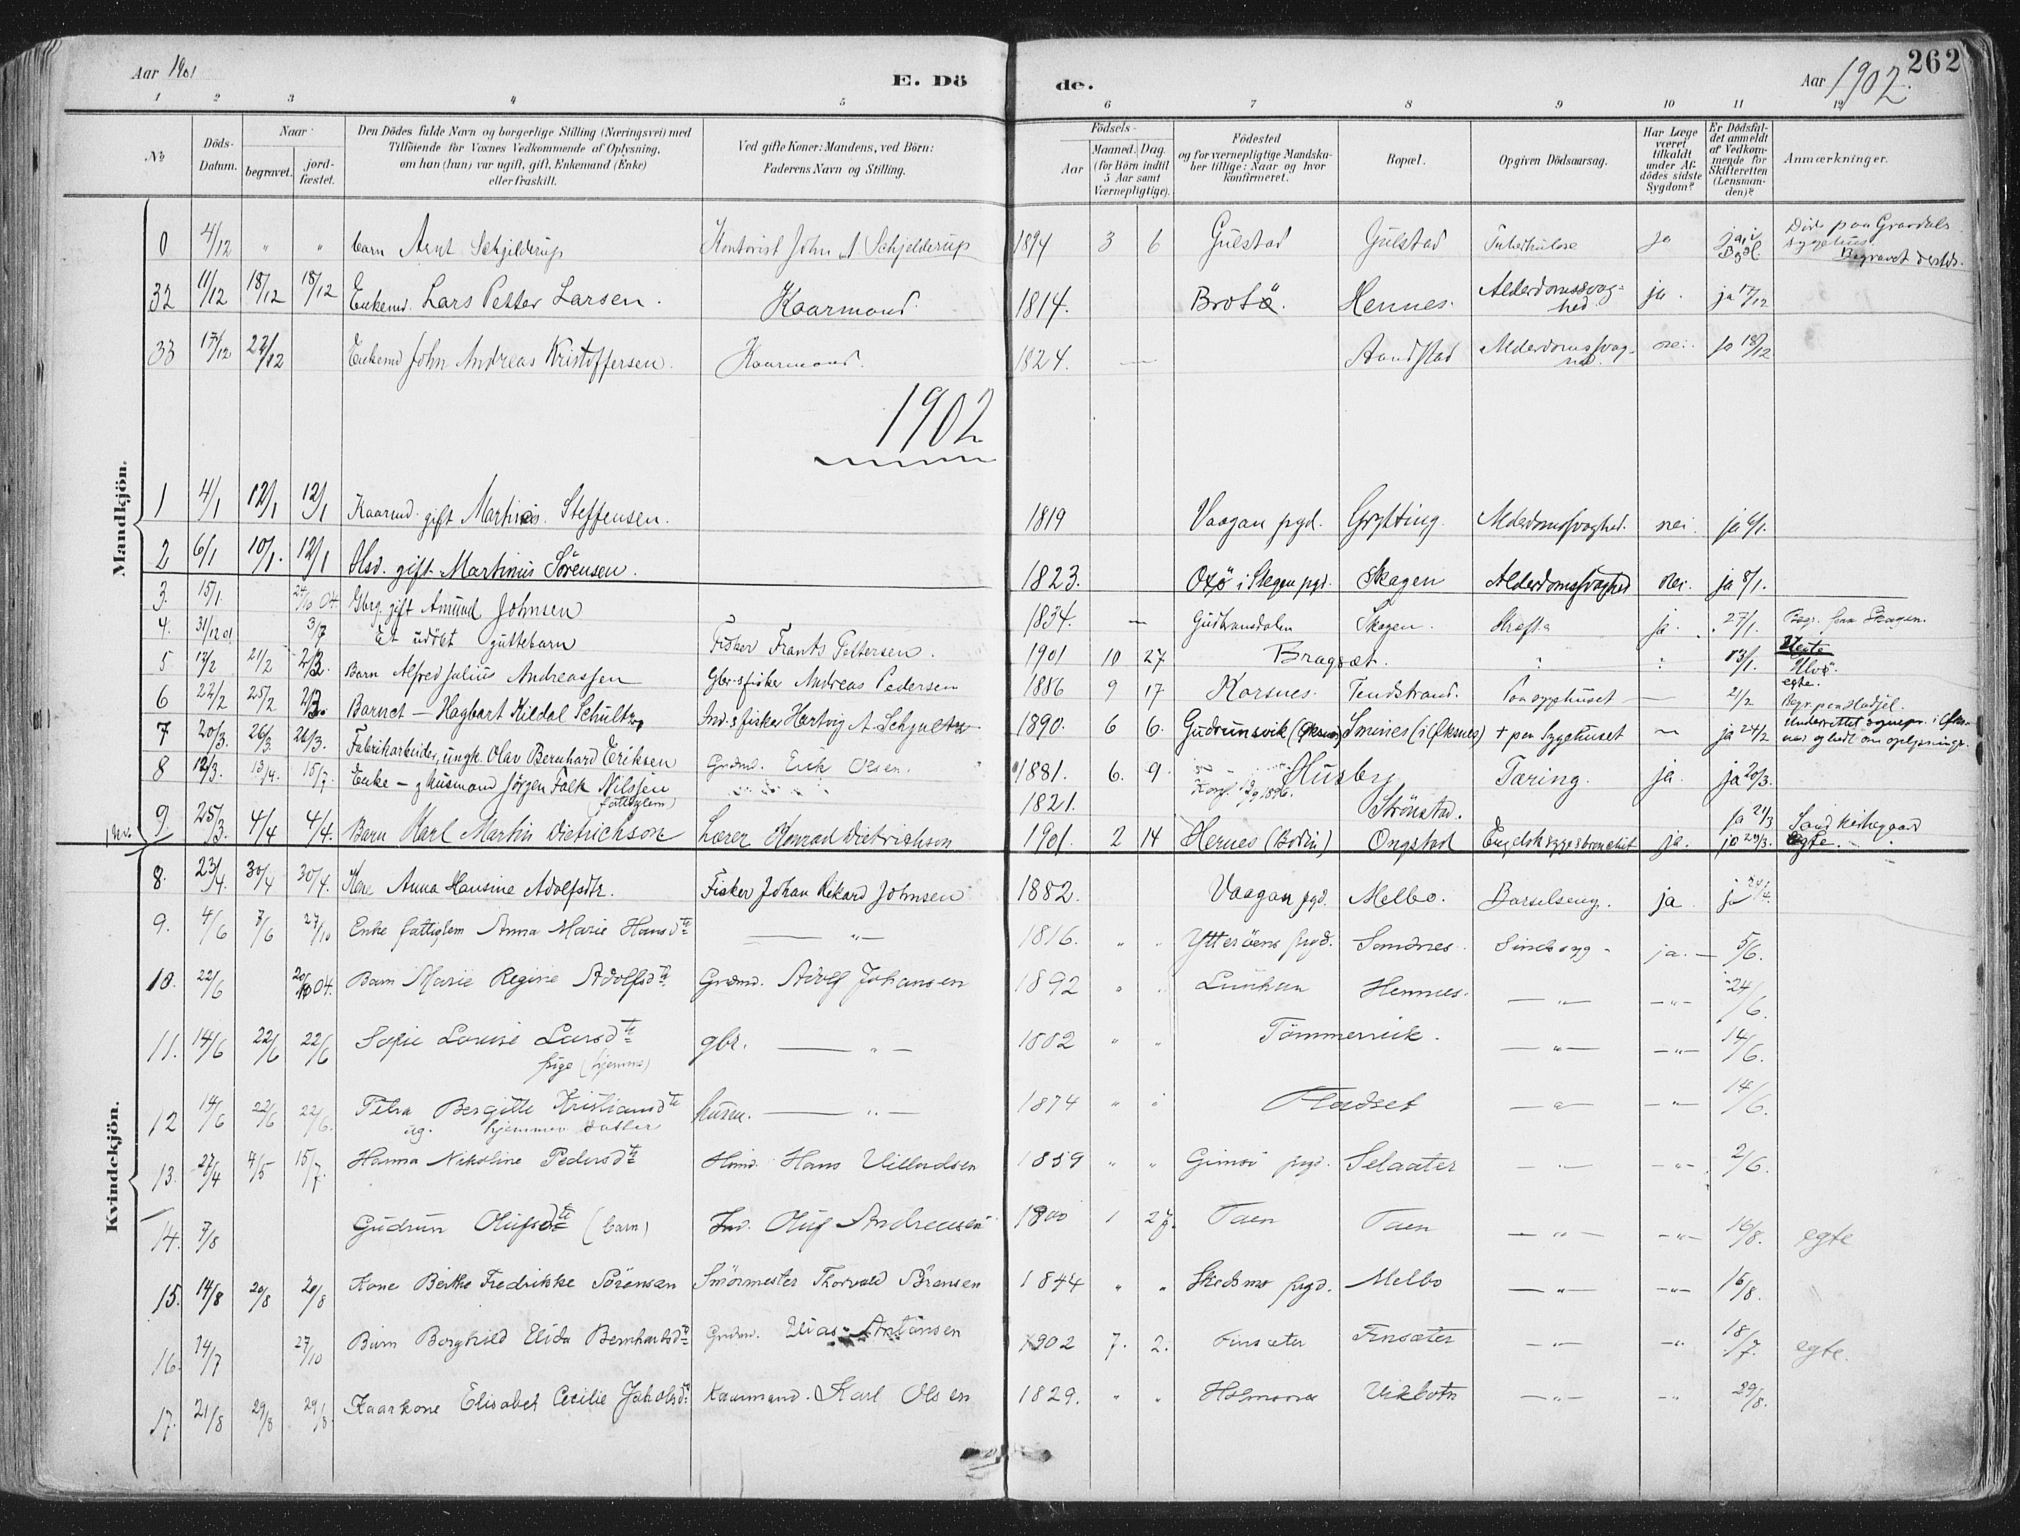 Aar 1901
E. Dö
de.
Aar 1902.
262
1 2 3 4 5 6 7 8 9 10 11 12
No
Döds-Datum.
Naar
begravet.
jordfæstet.
Den Dödes fulde Navn og borgerlige Stilling (Næringsvei) med
Tilföiende for Voxnes Vedkommende af Oplysning,
om han (hun) var ugift, gift, Enkemand (Enke)
eller fraskilt.
Ved gifte Koner: Mandens, ved Börn:
Faderens Navn og Stilling.
Födsels-
Aar
Maaned. Dag.
(for Börn indtil
5 Aar samt
Værnepligtige).
Födested
og for værnepligtige Mandska-
ber tillige: Naar og hvor
konfirmeret.
Bopæl.
Opgiven Dödsaarsag.
Har Læge
været
tilkaldt
under Af-
dödes sidste
Sygdom?
Er Dödsfal-
det anmeldt
af Vedkom-
mende for
Skifteretten
(Lensman-
den)?
Anmærkninger.
Mandkjön.
0 4/12 " " barn Arnt Schjelderup Kontorist John A Schjelderup 1894 3 6 Gulstad Gulstad Tuberkulose ja ja, i Bodö Död paa Gravdals sygehus. Begravet dersteds.
32 11/12 18/12 18/12 Enkemd. Lars Petter Larsen. Kaarmand. 1814. Brotö. Hennes. Alderdomssvaghed ja. ja 17/12
33 17/12 22/12 Enkemd John Andreas Kristoffersen. Kaarmand. 1824. — Aandstad Alderdomssvag- nei. ja 18/12
1902
1 4/1 12/1 12/1 Kaarmd. gift Martines Steffensen. 1819 Vaagan pgd. Grytting. Alderdomssvaghed. nei. ja 6/1.
2 6/1 10/1. 12/1 Hsd. gift. Martinus Sörensen. 1823. Oxö i Stegen pgd. Skagen Alderdomssvaghed nei. ja 8/1.
3. 15/1. 04. Gbrg. gift Amund Johnsen 1834. — Gudbrandsdalen Skagen. Kræfta ja. 27/1. Begr. paa Skagen.
4. 31/12 01 3/7 Et udöbt guttebarn Fisker Frants Pettersen. 1901 10 27 Bragset. 13/1. Uegte
5 17/2 21/2 2/3. Barn Alfred Julius Andreassen Gbr. s fisker Andreas Pedersen 1886 9 17 Korsnes. Tendstrand. Paa sygehuset — 2/2 egte.
6 22/2 25/2 2/3. Barnet — Hagbart Kildal Schultz Ind. s fisker Hartvig A. Schjultz 1890. 6 6. Gudrunsvik (Öksnes) Smines (i Öksnes) + paa Sygehuset — ja 24/2
7 20/3. 26/3 26/3. Fabrikarbeider, ungk. Olav Bernhard Eriksen Grdmd. Erik Olsen. 1881. 6. 9. Husby Tæring. ja. ja 20/3.
8 12/3. 13/4. 15/7. Enke — g husmand Jörgen Falk Nilssen (fattiglem) 1821. Strönstad. ja 21/3 Sand kirkegaard
9 25/3. 4/4 4/4. Barn Karl Martin Dietrichson Lærer Konrad Dietrichson 1901. 2 14 Hernes (Bodin) Ongstad Engelsk syge & bronchit ja. ja 29/3. Egte.
Kvindekjön.
8. 23/4. 30/4 30/4. Kone Anna Hansine Adolfsdtr. Fisker Johan Rikard Johnsen 1882. Vaagan pgd. Melbo. Barselseng. ja. ja 24/4.
9. 4/6 7/6 27/10 Enke fattiglem Anna Marie Hansdtr — " — 1816. " " Ytteröens prgd. Sandnes. Sindssyg - ja. — 5/6.
10. 22/6 04. Barn Marie Regine Adolfsdtr. Grdmd. Adolf Johansen 1892 " " Hennes. — " — — " — 24/6.
11. 14/6 22/6 22/6 Sofie Lovise Larsdtr pige (hjemme) gbr. — " — 1882 " " Tömmervik. — " — — " — 14/6.
12 14/6 22/6 22/6. Petra Bergitte Kristiansdtr ug. hjemmev datter husm. — " — 1874 " " Fladset — " — — " — 14/6.
13. 27/4 4/5 15/7. Hanna Nikoline Pedersdtr Hmd. Hans Villadsen 1859 " " Gimsö prgd. Selaater — " — — " — 2/6.
14. 7/8 Gudrun Olufsdtr (barn) Ind. Oluf Andreasen 1900 1 27. Taen Taen — " — — " — 16/8. egte
15. 14/8 20/8 20/8 Kone Berthe Fredrikke Sörensen Smörmester Thorvald Sörensen 1844 " " Skedsmo prgd. Melbo — " — — " — 16/8.
16. 14/7 27/10 Barn Borghild Elida Bernhardsdtr Grdmd. Elias Antonsen 1902 7. 2. Finsæter Finsæter — " — — " — 18/7. egte.
17. 21/8 29/8 29/8 Kaarkone Elisabet Cecilie Jakobsdtr Kaarmand. Karl Olsen 1829. " " Holmsnes Vikbotn — " — — " — 29/8.